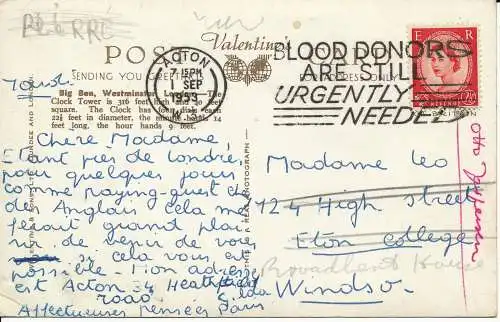 PIERRE
POST CARD
Valentine's
SENDING YOU GREETINGS
FOR ADDRESS ONLY
ACTON
15 PM
SEP
W.3
BLOOD DONORS
ARE STILL
URGENTLY
NEEDED
E R
Big Ben, Westminster, London. The
Clock Tower is 316 feet high and 40 feet
square. The Clock has four dials each
22½ feet in diameter, the minute hands 14
feet long, the hour hands 9 feet.
Chere Madame,
Etant près de Londres
pour quelques jours
comme paying-guest chez
des Anglais cela me
ferait grand plai-
sir de venir de vous
si cela vous est
possible. Mon adresse
est Acton 34 Heathfield
road
Affectueuses pensées
Madame Leo
124 High Street
Eton College
Broadbent House
Windsor
THIS IS A REAL PHOTOGRAPH
DUNDEE AND LONDON